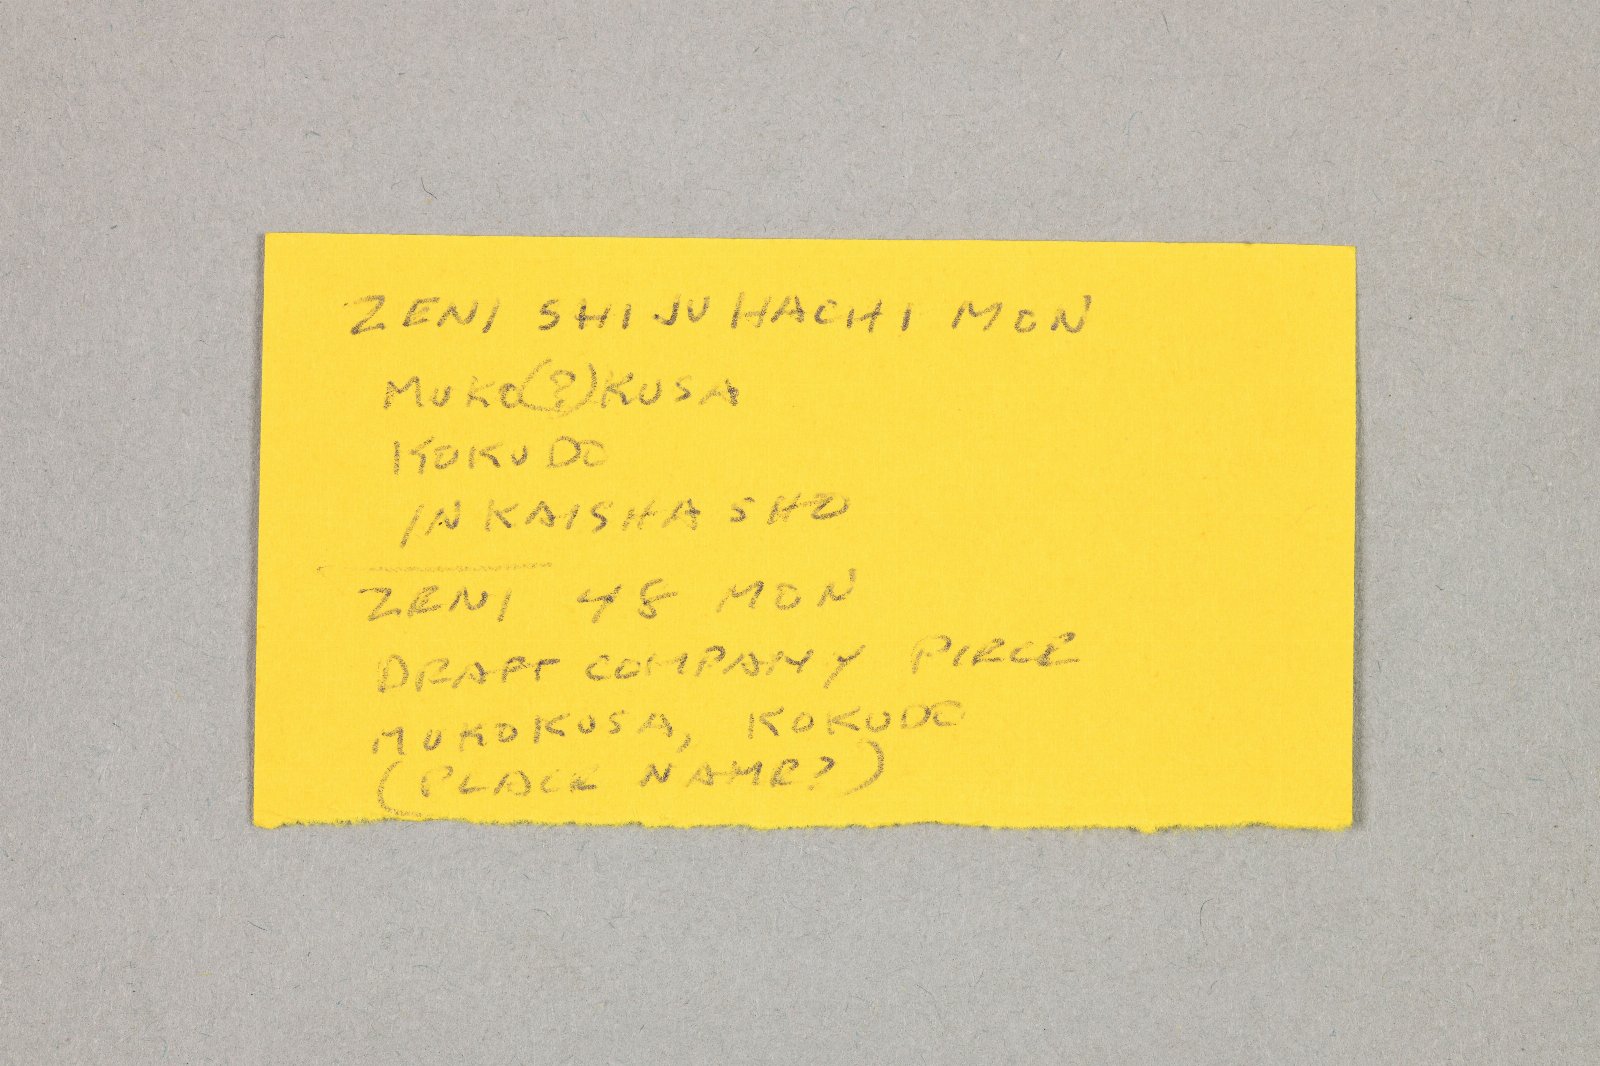 ZENI SHIJU HACHI MON
MUKO(?)KUSA
KOKUDO
IN KAISHA SHO
ZENI 48 MON
DRAFT COMPANY PIECE
MUKOKUSA, KOKUDO
(PLACE NAME?)